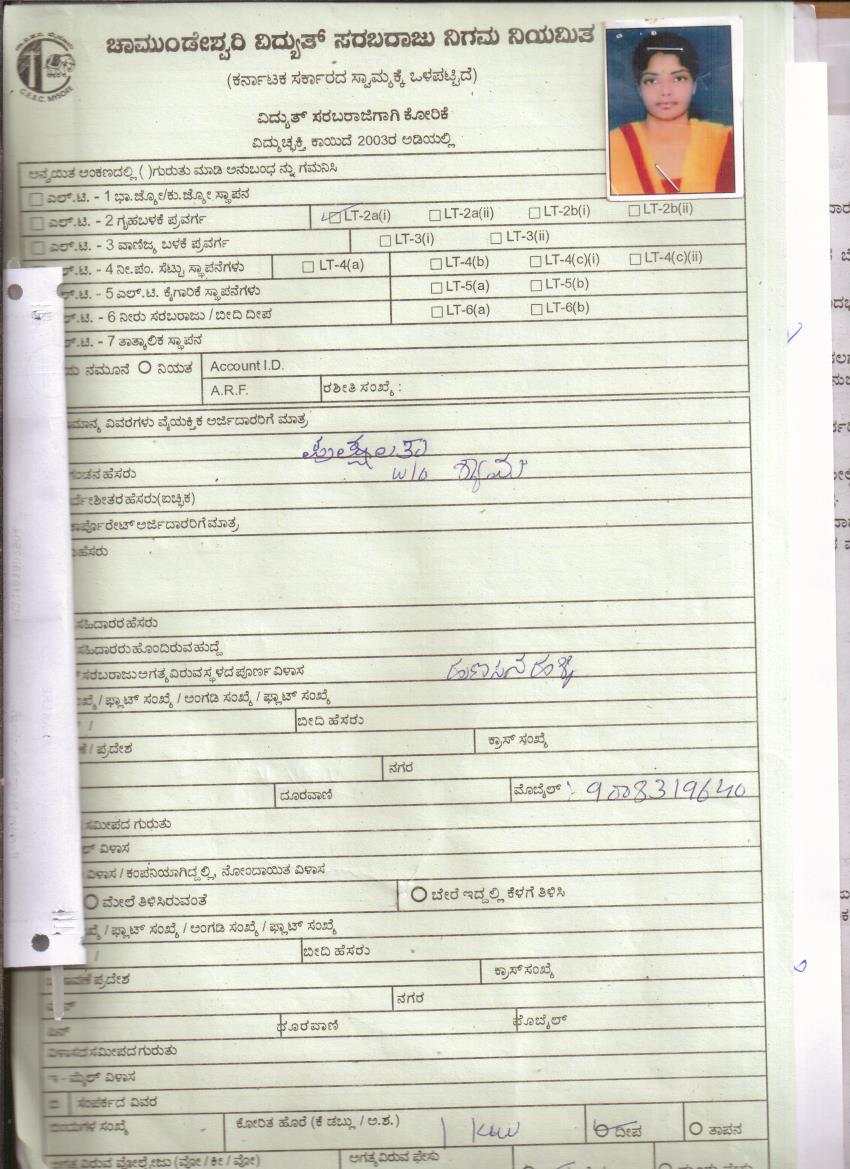 C.E.S.C. MYSORE
ಚಾಮುಂಡೇಶ್ವರಿ ವಿದ್ಯುತ್ ಸರಬರಾಜು ನಿಗಮ ನಿಯಮಿತ
(ಕರ್ನಾಟಕ ಸರ್ಕಾರದ ಸ್ವಾಮ್ಯಕ್ಕೆ ಒಳಪಟ್ಟಿದೆ)
ವಿದ್ಯುತ್ ಸರಬರಾಜಿಗಾಗಿ ಕೋರಿಕೆ
ವಿದ್ಯುಚ್ಛಕ್ತಿ ಕಾಯಿದೆ 2003ರ ಅಡಿಯಲ್ಲಿ
ಅನ್ವಯಿತ ಅಂಕಣದಲ್ಲಿ ( )ಗುರುತು ಮಾಡಿ ಅನುಬಂಧ ನ್ನು ಗಮನಿಸಿ
ಎಲ್.ಟಿ. - 1 ಭಾ.ಜ್ಯೋ/ಕು.ಜ್ಯೋ ಸ್ಥಾಪನ
ಎಲ್.ಟಿ. - 2 ಗೃಹಬಳಕೆ ಪ್ರವರ್ಗ LT-2a(i) LT-2a(ii) LT-2b(i) LT-2b(ii)
ಎಲ್.ಟಿ. - 3 ವಾಣಿಜ್ಯ ಬಳಕೆ ಪ್ರವರ್ಗ LT-3(i) LT-3(ii)
ಲ್.ಟಿ. - 4 ನೀ.ಪಂ. ಸೆಟ್ಟು ಸ್ಥಾಪನೆಗಳು LT-4(a) LT-4(b) LT-4(c)(i) LT-4(c)(ii)
ಲ್.ಟಿ. - 5 ಎಲ್.ಟಿ. ಕೈಗಾರಿಕೆ ಸ್ಥಾಪನೆಗಳು LT-5(a) LT-5(b)
ಲ್.ಟಿ. - 6 ನೀರು ಸರಬರಾಜು / ಬೀದಿ ದೀಪ LT-6(a) LT-6(b)
ಲ್.ಟಿ. - 7 ತಾತ್ಕಾಲಿಕ ಸ್ಥಾಪನ
ನಮೂನೆ ನಿಯತ Account I.D.
A.R.F. ರಶೀತಿ ಸಂಖ್ಯೆ :
ಮಾನ್ಯ ವಿವರಗಳು ವೈಯಕ್ತಿಕ ಅರ್ಜಿದಾರರಿಗೆ ಮಾತ್ರ
ಗಂಡನ ಹೆಸರು w/o ಶ್ಯಾಮ
ರ್ದೇಶೀತರ ಹೆಸರು(ಐಚ್ಛಿಕ)
ಾರ್ಪೊರೇಟ್ ಅರ್ಜಿದಾರರಿಗೆ ಮಾತ್ರ
ಹೆಸರು
ಸಹಿದಾರರ ಹೆಸರು
ಸಹಿದಾರರು ಹೊಂದಿರುವ ಹುದ್ದೆ
ಸರಬರಾಜು ಅಗತ್ಯವಿರುವ ಸ್ಥಳದ ಪೂರ್ಣ ವಿಳಾಸ ಹುಣಸನಹಳ್ಳಿ
ಖ್ಯೆ / ಫ್ಲಾಟ್ ಸಂಖ್ಯೆ / ಅಂಗಡಿ ಸಂಖ್ಯೆ / ಫ್ಲಾಟ್ ಸಂಖ್ಯೆ
/ ಬೀದಿ ಹೆಸರು
/ ಪ್ರದೇಶ ಕ್ರಾಸ್ ಸಂಖ್ಯೆ
ನಗರ
ದೂರವಾಣಿ ಮೊಬೈಲ್ : 9008319640
ಸಮೀಪದ ಗುರುತು
ಲ್ ವಿಳಾಸ
ವಿಳಾಸ / ಕಂಪನಿಯಾಗಿದ್ದಲ್ಲಿ, ನೋಂದಾಯಿತ ವಿಳಾಸ
ಮೇಲೆ ತಿಳಿಸಿರುವಂತೆ ಬೇರೆ ಇದ್ದಲ್ಲಿ ಕೆಳಗೆ ತಿಳಿಸಿ
ಖ್ಯೆ / ಫ್ಲಾಟ್ ಸಂಖ್ಯೆ / ಅಂಗಡಿ ಸಂಖ್ಯೆ / ಫ್ಲಾಟ್ ಸಂಖ್ಯೆ
/ ಬೀದಿ ಹೆಸರು
ಪ್ರದೇಶ ಕ್ರಾಸ್ ಸಂಖ್ಯೆ
ನಗರ
ಪಿನ್ ದೂರವಾಣಿ ಮೊಬೈಲ್
ವಿಳಾಸದ ಸಮೀಪದ ಗುರುತು
ಇ - ಮೈಲ್ ವಿಳಾಸ
ಸಂಪರ್ಕದ ವಿವರ
ಸಂಖ್ಯೆ ಕೋರಿತ ಹೊರೆ (ಕೆ ಡಬ್ಲು / ಅ.ಶ.) 1 KW ದೀಪ ತಾಪನ
ಅಗತ್ಯವಿರುವ ವೋಲ್ಟೇಜು (ವೋ / ಕೀ / ವೋ) ಅಗತ್ಯವಿರುವ ಫೇಸು